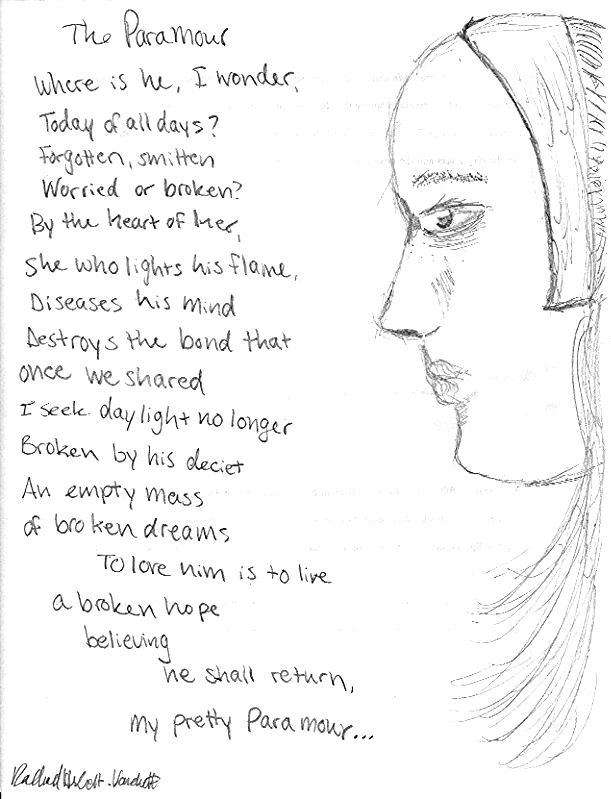 The Paramour
Where is he, I wonder,
Today of all days?
Forgotten, smitten
Worried or broken?
By the heart of her,
She who lights his flame,
Diseases his mind
Destroys the bond that
once we shared
I seek daylight no longer
Broken by his deciet
An empty mass
of broken dreams
To love him is to live
a broken hope
believing
he shall return,
my pretty Paramour...